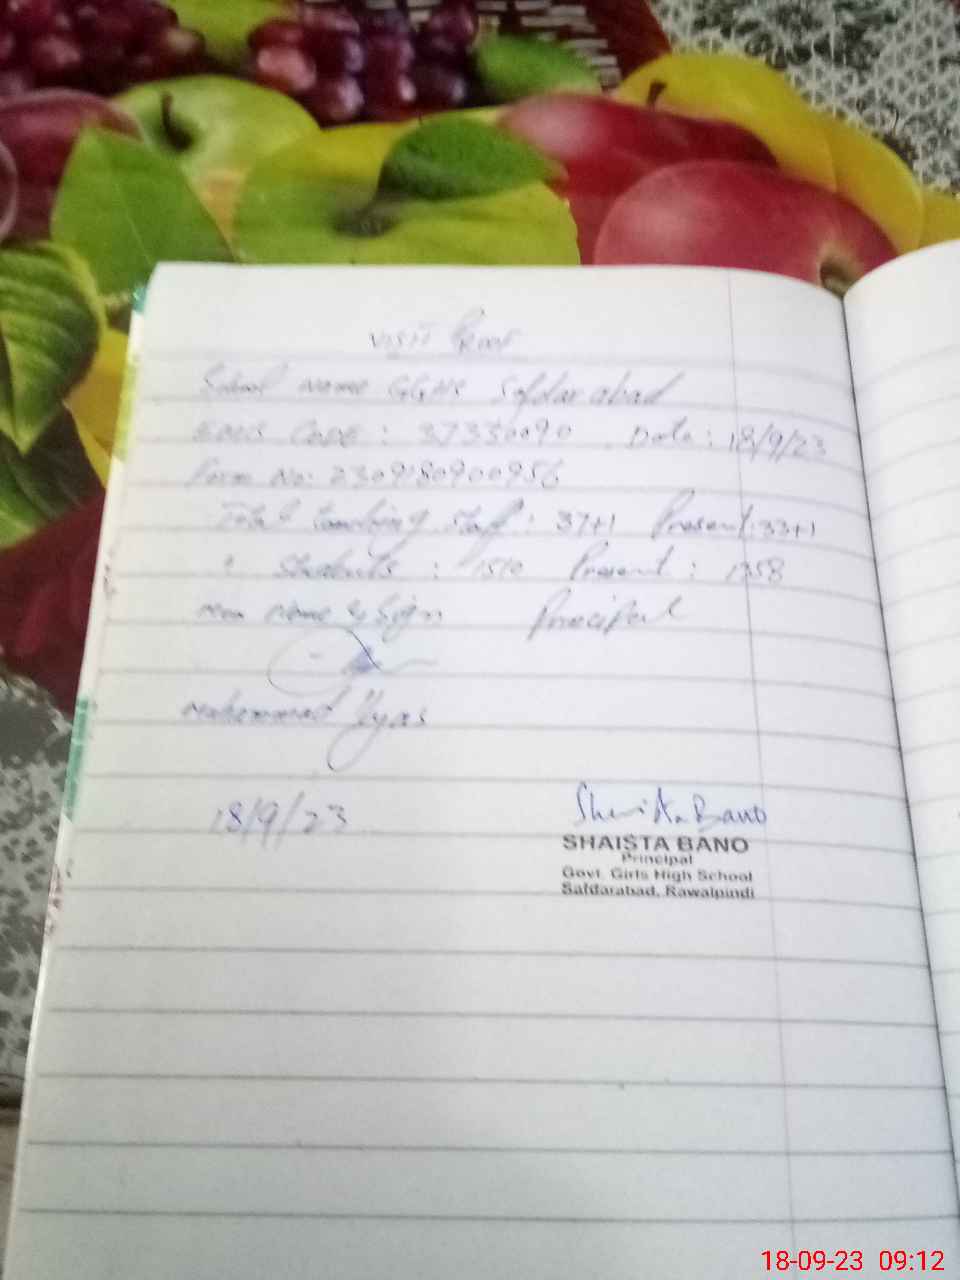 VISIT PROOF
School Name GGHS Safdarabad
EMIS CODE : 37330090 Date: 18/9/23
Form No: 2309180900956
Total teaching staff: 37+1 Present: 33+1
" Students : 1510 Present: 1358
Name & Sign Principal
Muhammad Ilyas
18/9/23
Shaista Bano
SHAISTA BANO
Principal
Govt. Girls High School
Safdarabad, Rawalpindi
18-09-23 09:12